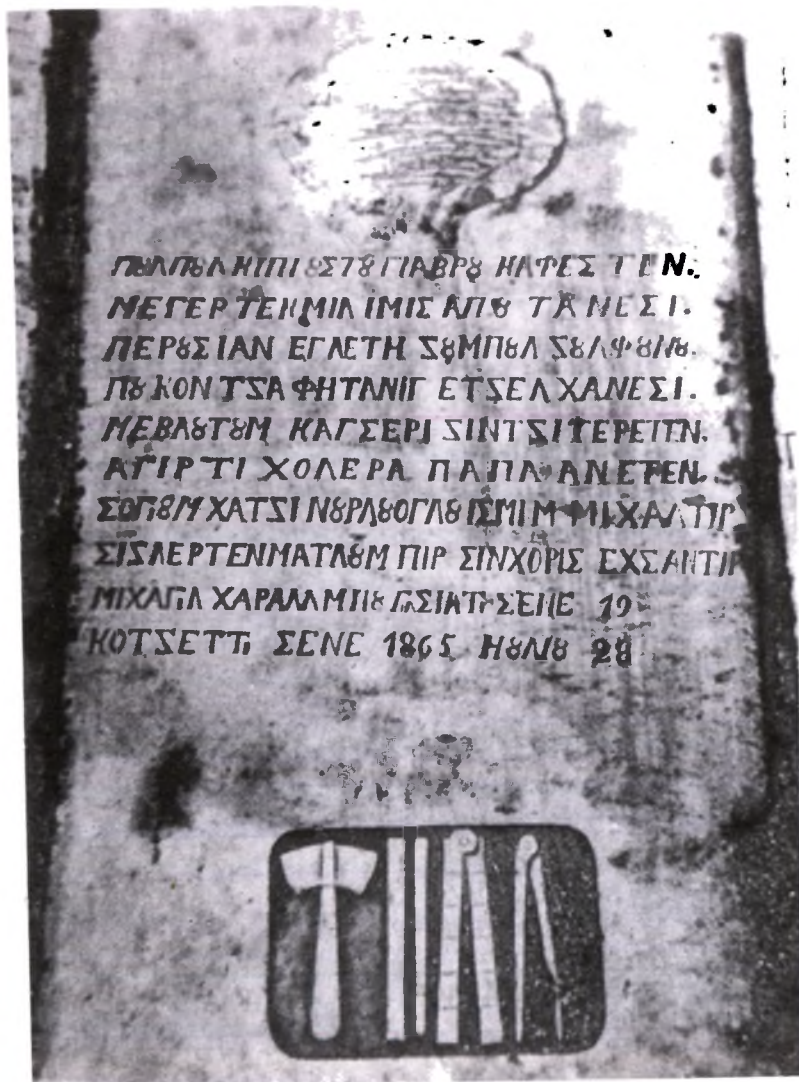 ΠȢΛΠȢΛ ΚΙΠΙ ȢΣΤȢ ΓΙΑΒΡȢ ΚΑΦΕΣ ΤΕΝ.
ΜΕΓΕΡ ΤΕΚΜΙΛ ΙΜΙΣ ΑΠȢ ΤΑΝΕΣΙ.
ΠΕΡȢΣΙΑΝ ΕΓΛΕΤΗ ΖȢΜΠȢΛ ΖȢΛΦȢΝȢ.
ΠȢ ΚΟΝΤΖΑ ΦΗΤΑΝΙΓ ΕΤΖΕΛ ΧΑΝΕΣΙ.
ΜΕΒΛȢΤȢΜ ΚΑΓΣΕΡΙ ΣΙΝΤΖΙΤΕΡΕΠΝ.
ΑΓΙΡΤΙ ΧΟΛΕΡΑ ΠΑΠΑ ΑΝΕΤΕΝ.
ΣΟΓȢΜ ΧΑΤΖΙ ΝȢΡΛȢΟΓΛȢ ΙΣΜΙΜ ΜΙΧΑΛΤΙΡ
ΣΙΖΛΕΡΤΕΝ ΜΑΤΛȢΜ ΠΙΡ ΣΙΝΧΟΡΙΣ ΕΧΣΑΝΤΙΡ
ΜΙΧΑΓΙΛ ΧΑΡΑΛΑΜΠȢ ΣΕΝΕ 19
ΚΟΤΖΕΤΤΙ ΣΕΝΕ 1865 ΗȢΛΙȢ 28